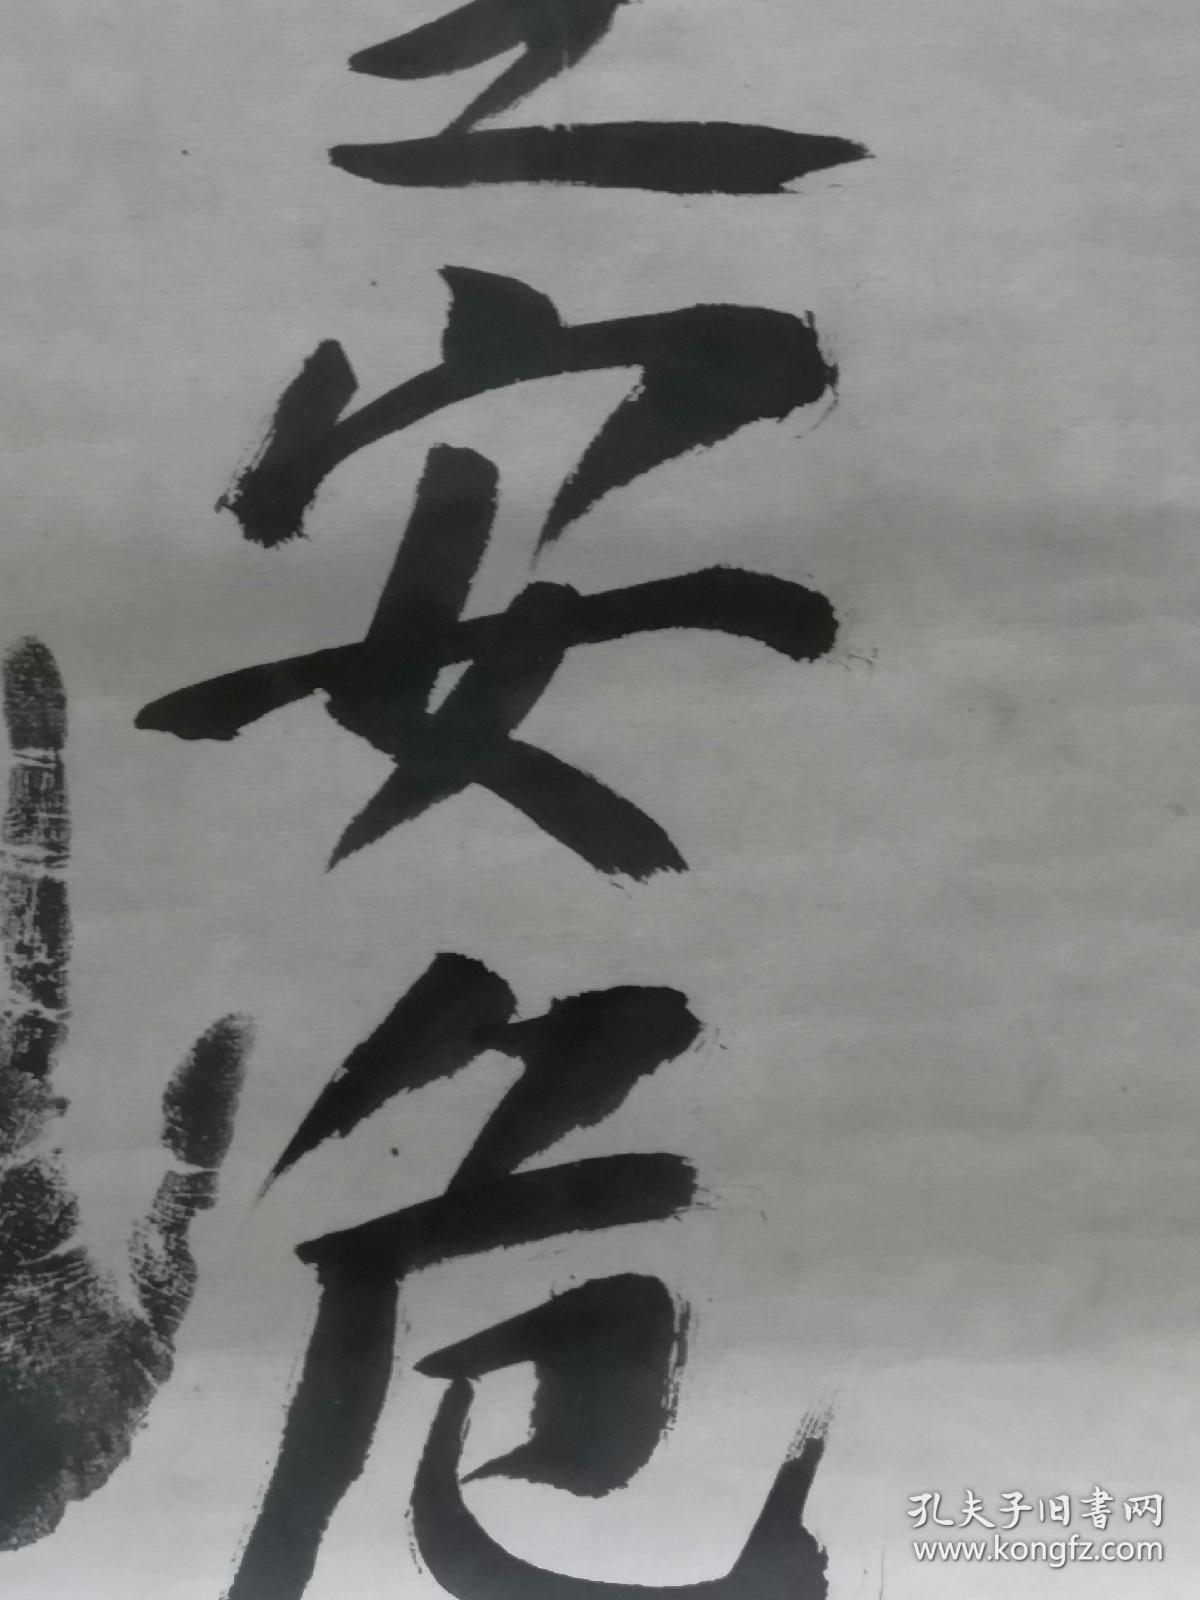 安危
孔夫子旧書网
www.kongfz.com